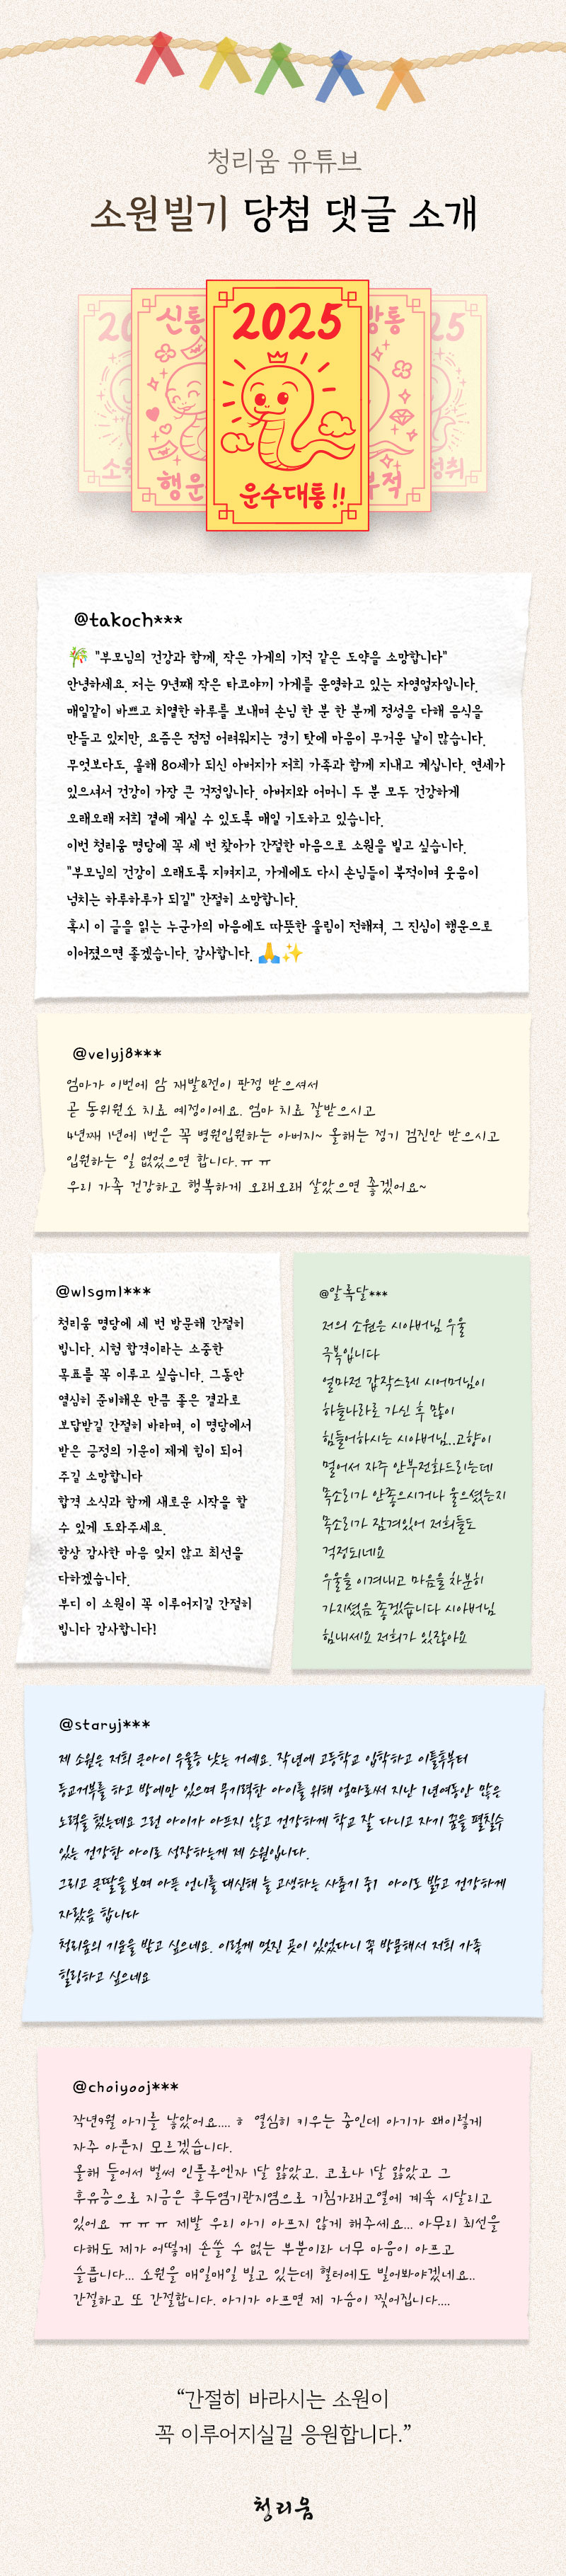 청리움 유튜브
소원빌기 당첨 댓글 소개
신통
2025
행운
운수대통!!
@takoch***
"부모님의 건강과 함께, 작은 가게의 기적 같은 도약을 소망합니다"
안녕하세요. 저는 9년째 작은 타코야끼 가게를 운영하고 있는 자영업자입니다.
매일같이 바쁘고 치열한 하루를 보내며 손님 한 분 한 분께 정성을 다해 음식을
만들고 있지만, 요즘은 점점 어려워지는 경기 탓에 마음이 무거운 날이 많습니다.
무엇보다도, 올해 80세가 되신 아버지가 저희 가족과 함께 지내고 계십니다. 연세가
있으셔서 건강이 가장 큰 걱정입니다. 아버지와 어머니 두 분 모두 건강하게
오래오래 저희 곁에 계실 수 있도록 매일 기도하고 있습니다.
이번 청리움 명당에 꼭 세 번 찾아가 간절한 마음으로 소원을 빌고 싶습니다.
"부모님의 건강이 오래도록 지켜지고, 가게에도 다시 손님들이 북적이며 웃음이
넘치는 하루하루가 되길" 간절히 소망합니다.
혹시 이 글을 읽는 누군가의 마음에도 따뜻한 울림이 전해져, 그 진심이 행운으로
이어졌으면 좋겠습니다. 감사합니다. 🙏✨
@velyj8***
엄마가 이번에 암 재발&전이 판정 받으셔서
곧 동위원소 치료 예정이에요. 엄마 치료 잘받으시고
4년째 1년에 1번은 꼭 병원입원하는 아버지~ 올해는 정기 검진만 받으시고
입원하는 일 없었으면 합니다.ㅠㅠ
우리 가족 건강하고 행복하게 오래오래 살았으면 좋겠어요~
@wlsgml***
청리움 명당에 세 번 방문해 간절히
빕니다. 시험 합격이라는 소중한
목표를 꼭 이루고 싶습니다. 그동안
열심히 준비해온 만큼 좋은 결과로
보답받길 간절히 바라며, 이 명당에서
받은 긍정의 기운이 제게 힘이 되어
주길 소망합니다
합격 소식과 함께 새로운 시작을 할
수 있게 도와주세요.
항상 감사한 마음 잊지 않고 최선을
다하겠습니다.
부디 이 소원이 꼭 이루어지길 간절히
빕니다 감사합니다!
@알록달***
저의 소원은 시아버님 우울
극복입니다
얼마전 갑작스레 시어머님이
하늘나라로 가신 후 많이
힘들어하시는 시아버님..고향이
멀어서 자주 안부전화드리는데
목소리가 안좋으시거나 울으셨는지
목소리가 잠겨있어 저희들도
걱정되네요
우울을 이겨내고 마음을 차분히
가지셨음 좋겠습니다 시아버님
힘내세요 저희가 있잖아요
@staryj***
제 소원은 저희 큰아이 우울증 낫는 거예요. 작년에 고등학교 입학하고 이틀후부터
등교거부를 하고 방에만 있으며 무기력한 아이를 위해 엄마로써 지난 1년여동안 많은
노력을 했는데요 그런 아이가 아프지 않고 건강하게 학교 잘 다니고 자기 꿈을 펼칠수
있는 건강한 아이로 성장하는게 제 소원입니다.
그리고 큰딸을 보며 아픈 언니를 대신해 늘 고생하는 사춘기 중1 아이도 밝고 건강하게
자랐음 합니다
청리움의 기운을 받고 싶으네요. 이렇게 멋진 곳이 있었다니 꼭 방문해서 저희 가족
힐링하고 싶으네요
@choiyooj***
작년9월 아기를 낳았어요.... ㅎ 열심히 키우는 중인데 아기가 왜이렇게
자주 아픈지 모르겠습니다.
올해 들어서 벌써 인플루엔자 1달 앓았고. 코로나 1달 앓았고 그
후유증으로 지금은 후두염기관지염으로 기침가래고열에 계속 시달리고
있어요 ㅠㅠㅠ 제발 우리 아기 아프지 않게 해주세요... 아무리 최선을
다해도 제가 어떻게 손쓸 수 없는 부분이라 너무 마음이 아프고
슬픕니다... 소원을 매일매일 빌고 있는데 혈터에도 빌어봐야겠네요..
간절하고 또 간절합니다. 아기가 아프면 제 가슴이 찢어집니다....
“간절히 바라시는 소원이
꼭 이루어지실길 응원합니다.”
청리움